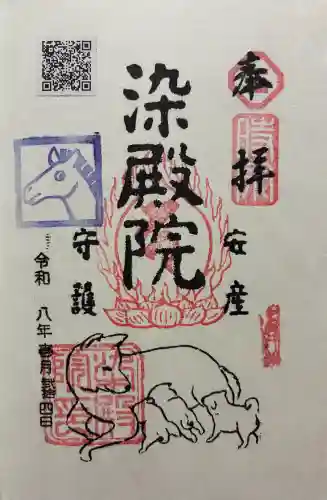 奉拝
安産
染殿院
守護
令和 八年 壱月 弐拾四日